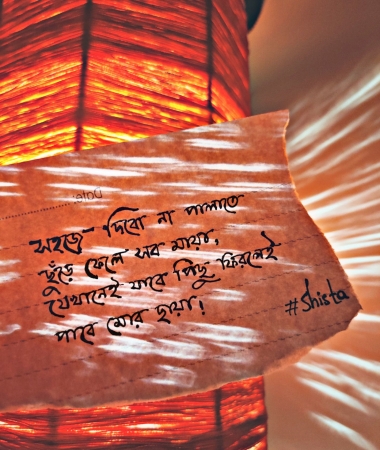 Date:
সহজে দিবো না পালাতে
ছুঁড়ে ফেলে সব মায়া,
যেখানেই যাবে পিছু ফিরলেই
পাবে মোর ছায়া!
#Shista